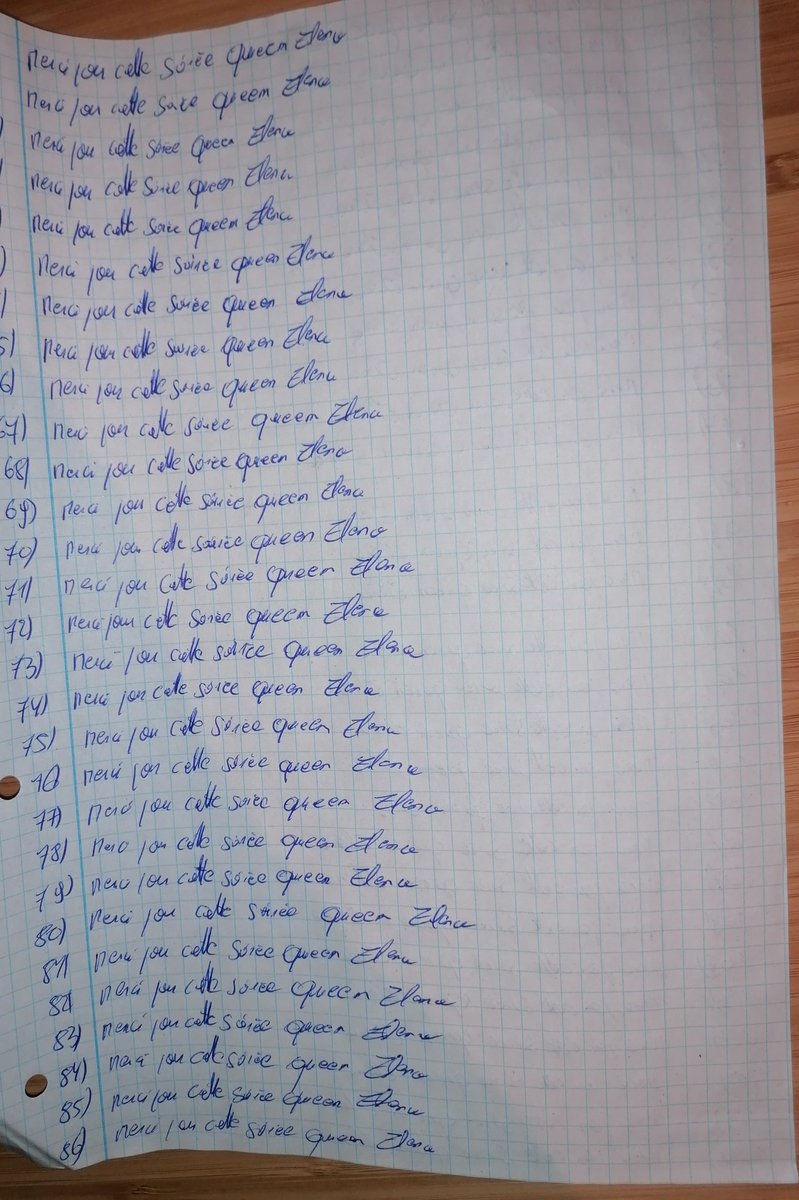 Merci pour cette soirée Queen Elena
Merci pour cette soirée Queen Elena
) Merci pour cette soirée Queen Elena
Merci pour cette soirée Queen Elena
) Merci pour cette soirée Queen Elena
) Merci pour cette soirée Queen Elena
) Merci pour cette soirée Queen Elena
5) Merci pour cette soirée Queen Elena
6) Merci pour cette soirée Queen Elena
67) Merci pour cette soirée Queen Elena
68) Merci pour cette soirée Queen Elena
69) Merci pour cette soirée Queen Elena
70) Merci pour cette soirée Queen Elena
71) Merci pour cette soirée Queen Elena
72) Merci pour cette soirée Queen Elena
73) Merci pour cette soirée Queen Elena
74) Merci pour cette soirée Queen Elena
75) Merci pour cette soirée Queen Elena
76) Merci pour cette soirée Queen Elena
77) Merci pour cette soirée Queen Elena
78) Merci pour cette soirée Queen Elena
79) Merci pour cette soirée Queen Elena
80) Merci pour cette soirée Queen Elena
81) Merci pour cette soirée Queen Elena
82) Merci pour cette soirée Queen Elena
83) Merci pour cette soirée Queen Elena
84) Merci pour cette soirée Queen Elena
85) Merci pour cette soirée Queen Elena
86) Merci pour cette soirée Queen Elena